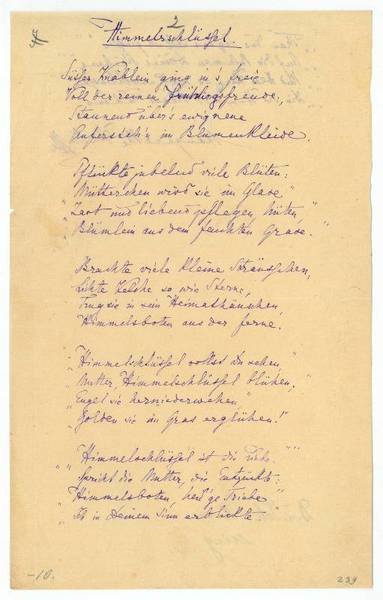 2
Himmelsschlüssel.
Süsses Knäblein ging in's freie
Voll der reinen Frühlingsfreude,
Staunend über's ewigneue
Aufersteh'n im Blumenkleide.
Pflückte jubelnd viele Blüten:
"Mütterchen wird sie im Glase"
"Zart und liebend pflegen, hüten"
"Blümlein aus dem feuchten Grase."
Brachte viele kleine Sträusschen,
Kelche so wie Sterne,
Trug sie in sein Heimathäuschen
Himmelsboten aus der ferne.
"Himmelschlüssel sollst Du sehen,"
"Mutter, Himmelschlüssel blühen,"
"Engel sie herniederwehen"
"Golden sie im Gras erglühen!"
"Himmelschlüssel ist die Liebe"
Spricht die Mutter, die Entzückte:
"Himmelsboten, heil'ge Triebe"
in Deinem Sinn erblickte
-10.
239